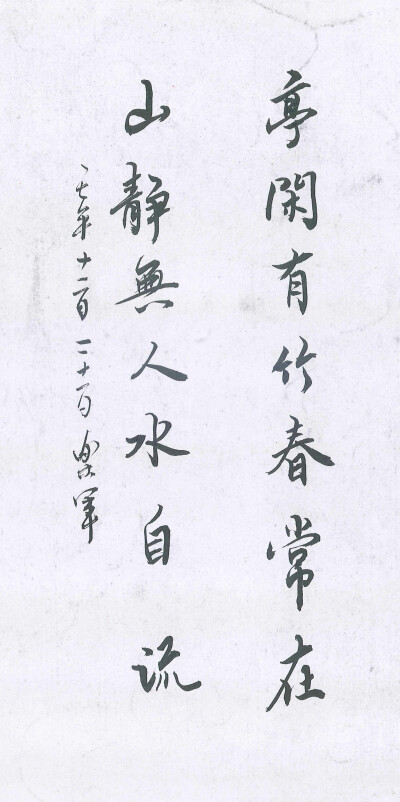 亭閑有竹春常在
山靜無人水自流
年十一月二十日